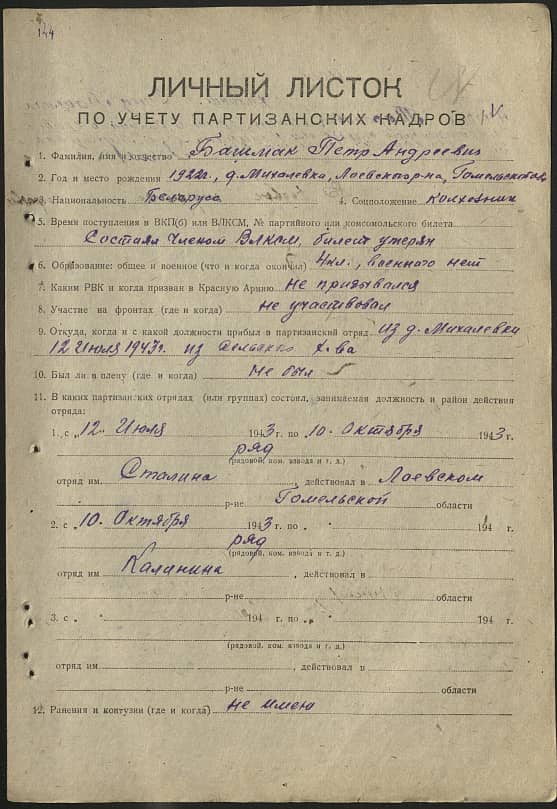 144
ЛИЧНЫЙ ЛИСТОК
ПО УЧЕТУ ПАРТИЗАНСКИХ КАДРОВ
1. Фамилия, имя и отчество Башмак Петр Андреевич
2. Год и место рождения 1922г., д. Михалевка, Лоевского р-на, Гомельской обл.
3. Национальность Беларус 4. Соцположение колхозник
5. Время поступления в ВКП(б) или ВЛКСМ, № партийного или комсомольского билета
Состоял членом ВЛКСМ, билет утерян
6. Образование: общее и военное (что и когда окончил) 4 кл., военного нет
7. Каким РВК и когда призван в Красную Армию не призывался
8. Участие на фронтах (где и когда) не участвовал
9. Откуда, когда и с какой должности прибыл в партизанский отряд из д. Михалевки
12 Июля 1943г. из сельского х-ва
10. Был ли в плену (где и когда) Не был
11. В каких партизанских отрядах (или группах) состоял, занимаемая должность и район действия
отряда:
1. с „12 Июля 1943 г. по „10 Октября 1943 г.
ряд
(рядовой, ком. взвода и т. д.)
отряд им. Сталина, действовал в Лоевском
р-не Гомельской области
2. с „10 Октября 1943 г. по „ 194 г.
ряд
(рядовой, ком. взвода и т. д.)
отряд им Калинина, действовал в
р-не области
3. с „ 194 г. по „ 194 г.
(рядовой, ком. взвода и т. д.)
отряд им. , действовал в
р-не области
12. Ранения и контузии (где и когда) не имею